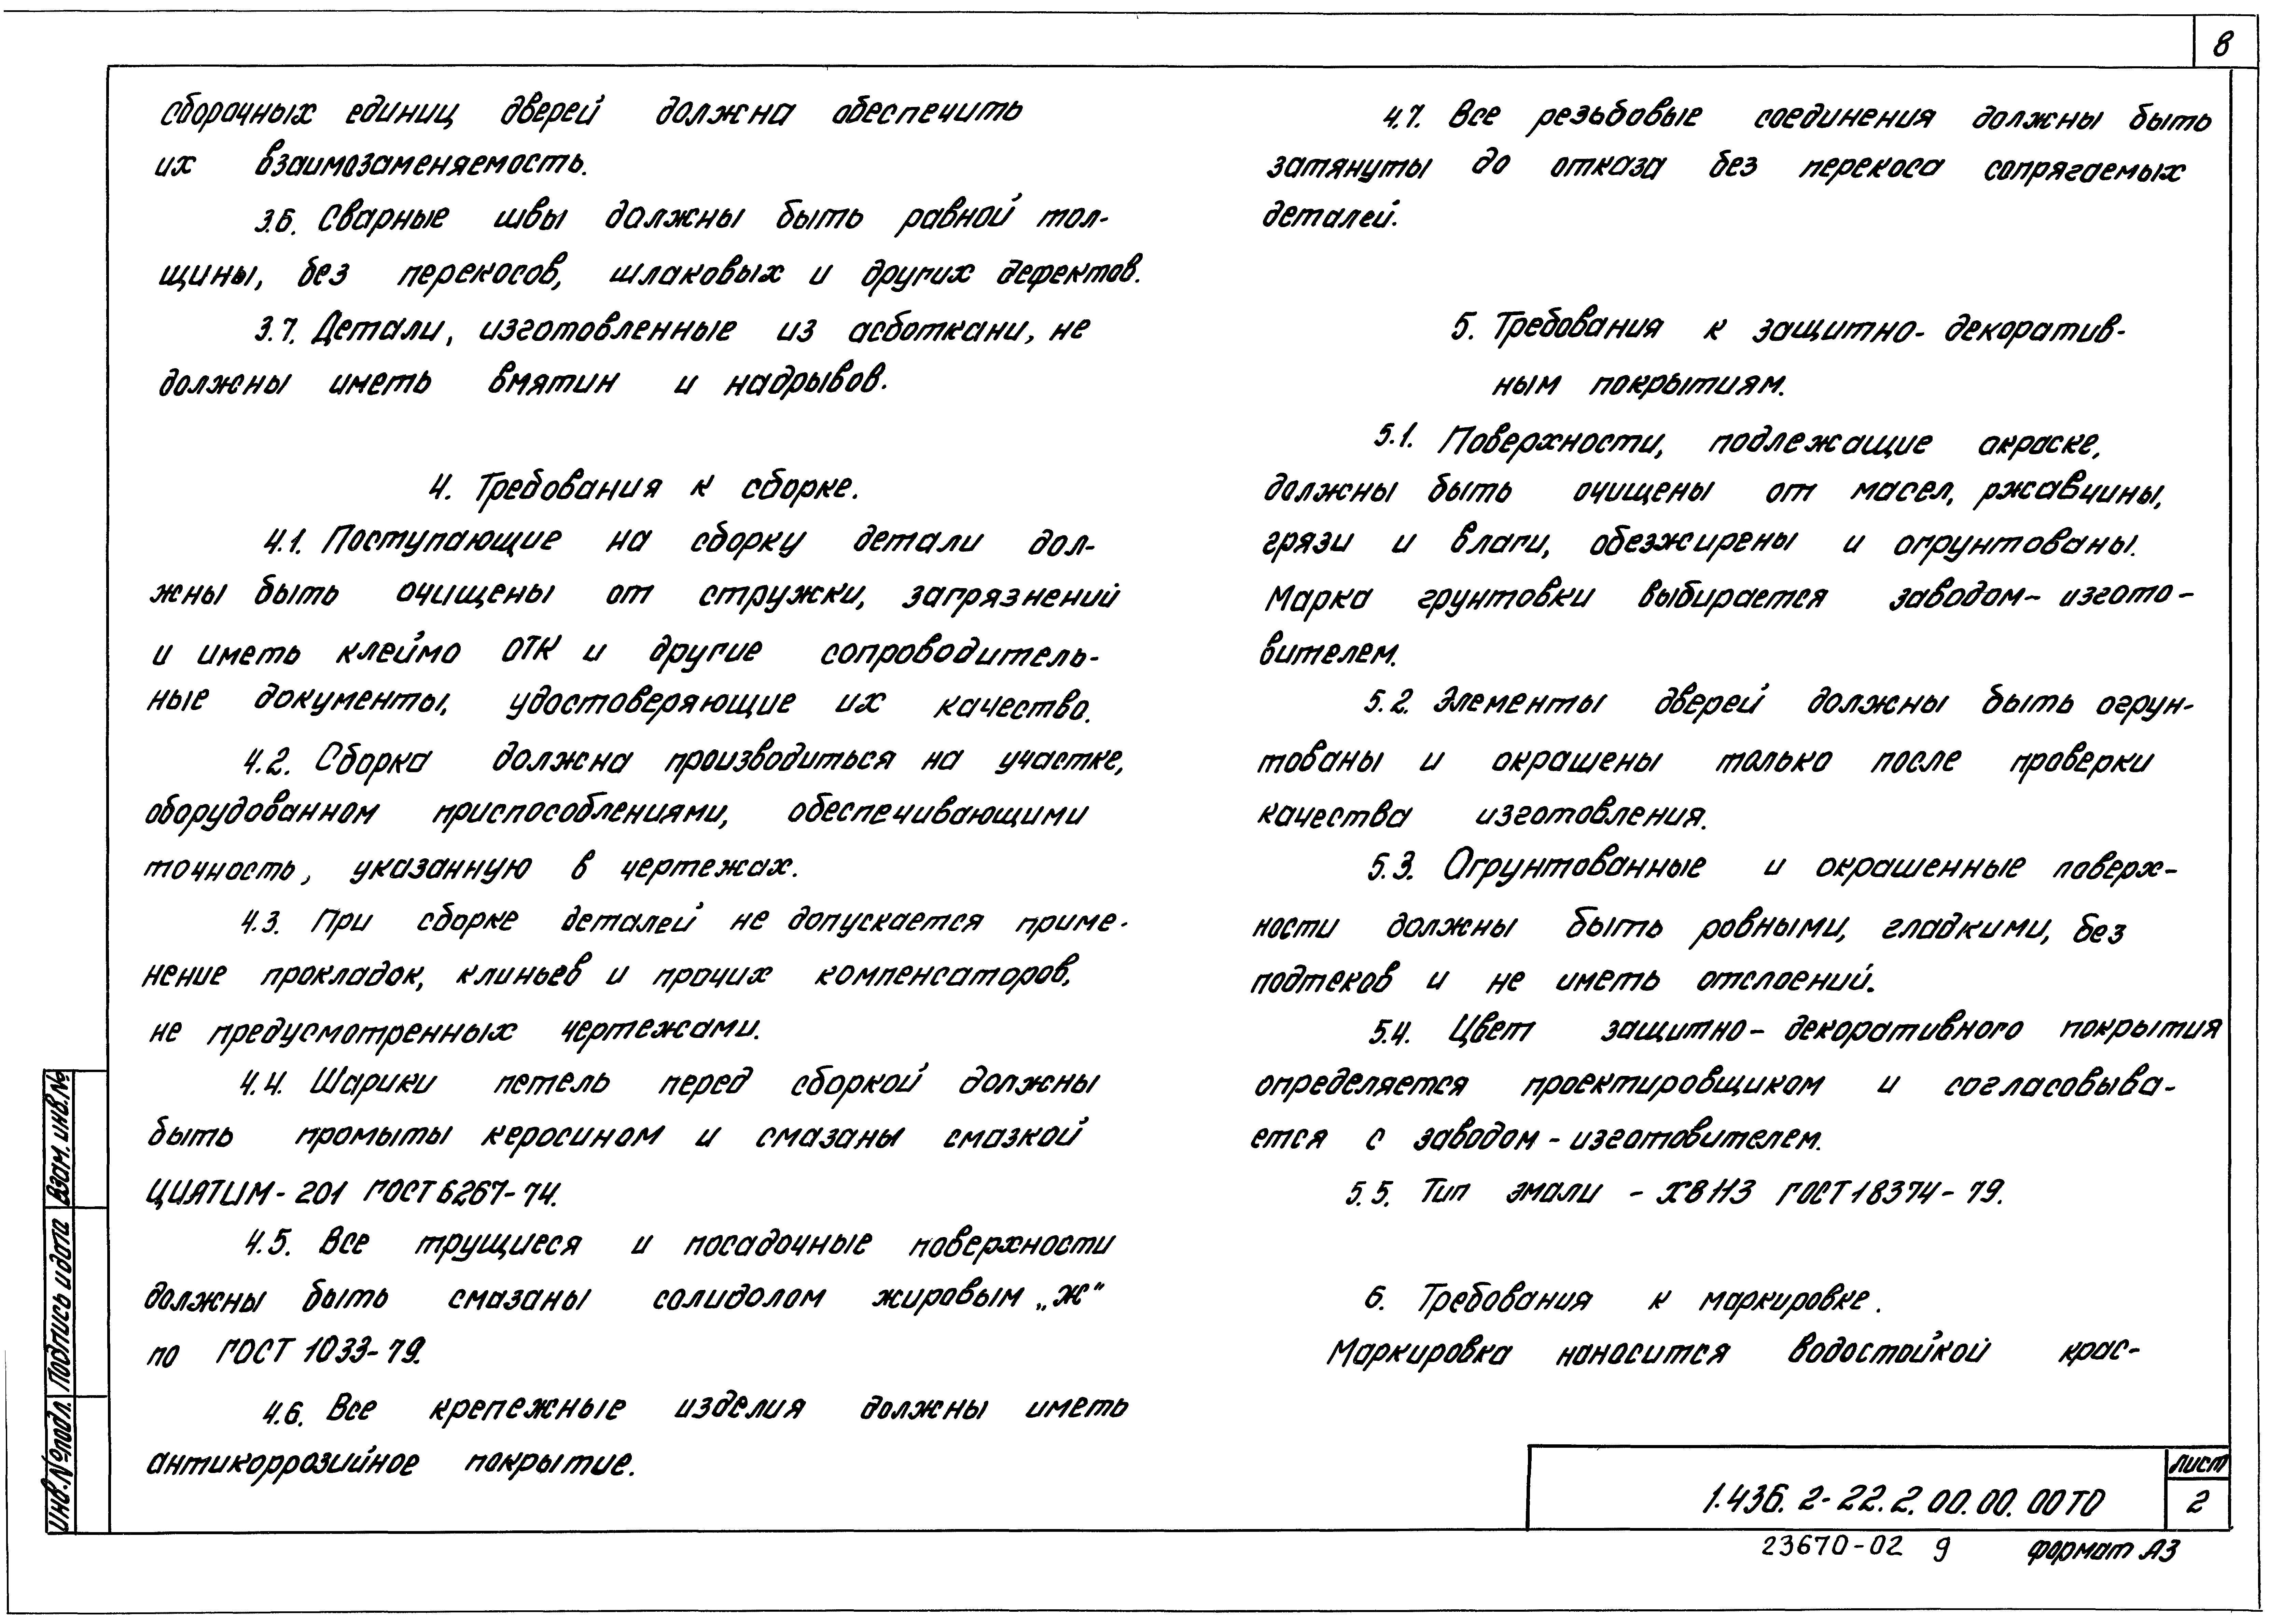 8
сборочных единиц дверей должна обеспечить
их взаимозаменяемость.
3.6. Сварные швы должны быть равной тол-
щины, без перекосов, шлаковых и других дефектов.
3.7. Детали, изготовленные из асботкани, не
должны иметь вмятин и надрывов.
4. Требования к сборке.
4.1. Поступающие на сборку детали дол-
жны быть очищены от стружки, загрязнений
и иметь клеймо ОТК и другие сопроводитель-
ные документы, удостоверяющие их качество.
4.2. Сборка должна производиться на участке,
оборудованном приспособлениями, обеспечивающими
точность, указанную в чертежах.
4.3. При сборке деталей не допускается приме-
нение прокладок, клиньев и прочих компенсаторов,
не предусмотренных чертежами.
4.4. Шарики петель перед сборкой должны
быть промыты керосином и смазаны смазкой
ЦИЯТИМ-201 ГОСТ 6267-74.
4.5. Все трущиеся и посадочные поверхности
должны быть смазаны солидолом жировым „Ж"
по ГОСТ 1033-79.
4.6. Все крепежные изделия должны иметь
антикоррозийное покрытие.
4.7. Все резьбовые соединения должны быть
затянуты до отказа без перекоса сопрягаемых
деталей.
5. Требования к защитно-декоратив-
ным покрытиям.
5.1. Поверхности, подлежащие окраске,
должны быть очищены от масел, ржавчины,
грязи и влаги, обезжирены и огрунтованы.
Марка грунтовки выбирается заводом-изгото-
вителем.
5.2. Элементы дверей должны быть огрун-
тованы и окрашены только после проверки
качества изготовления.
5.3. Огрунтованные и окрашенные поверх-
ности должны быть ровными, гладкими, без
подтеков и не иметь отслоений.
5.4. Цвет защитно-декоративного покрытия
определяется проектировщиком и согласовыва-
ется с заводом-изготовителем.
5.5. Тип эмали - ХВ 113 ГОСТ 18374-79.
6. Требования к маркировке.
Маркировка наносится водостойкой крас-
Взам. инв. №
Подпись и дата
Инв. № подл.
1.436.2-22.2.00.00.00ТО
Лист
2
23670-02 9
Формат А3